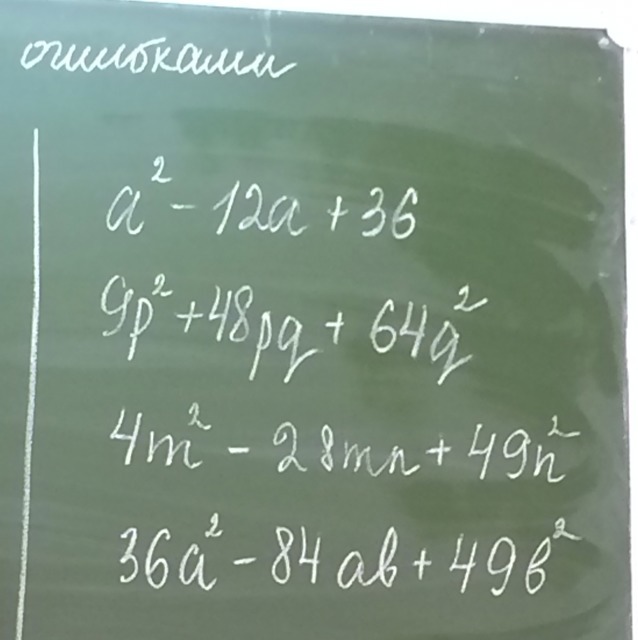 ошибками
a² - 12a + 36
9p² + 48pq + 64q²
4m² - 28mn + 49n²
36a² - 84ab + 49b²